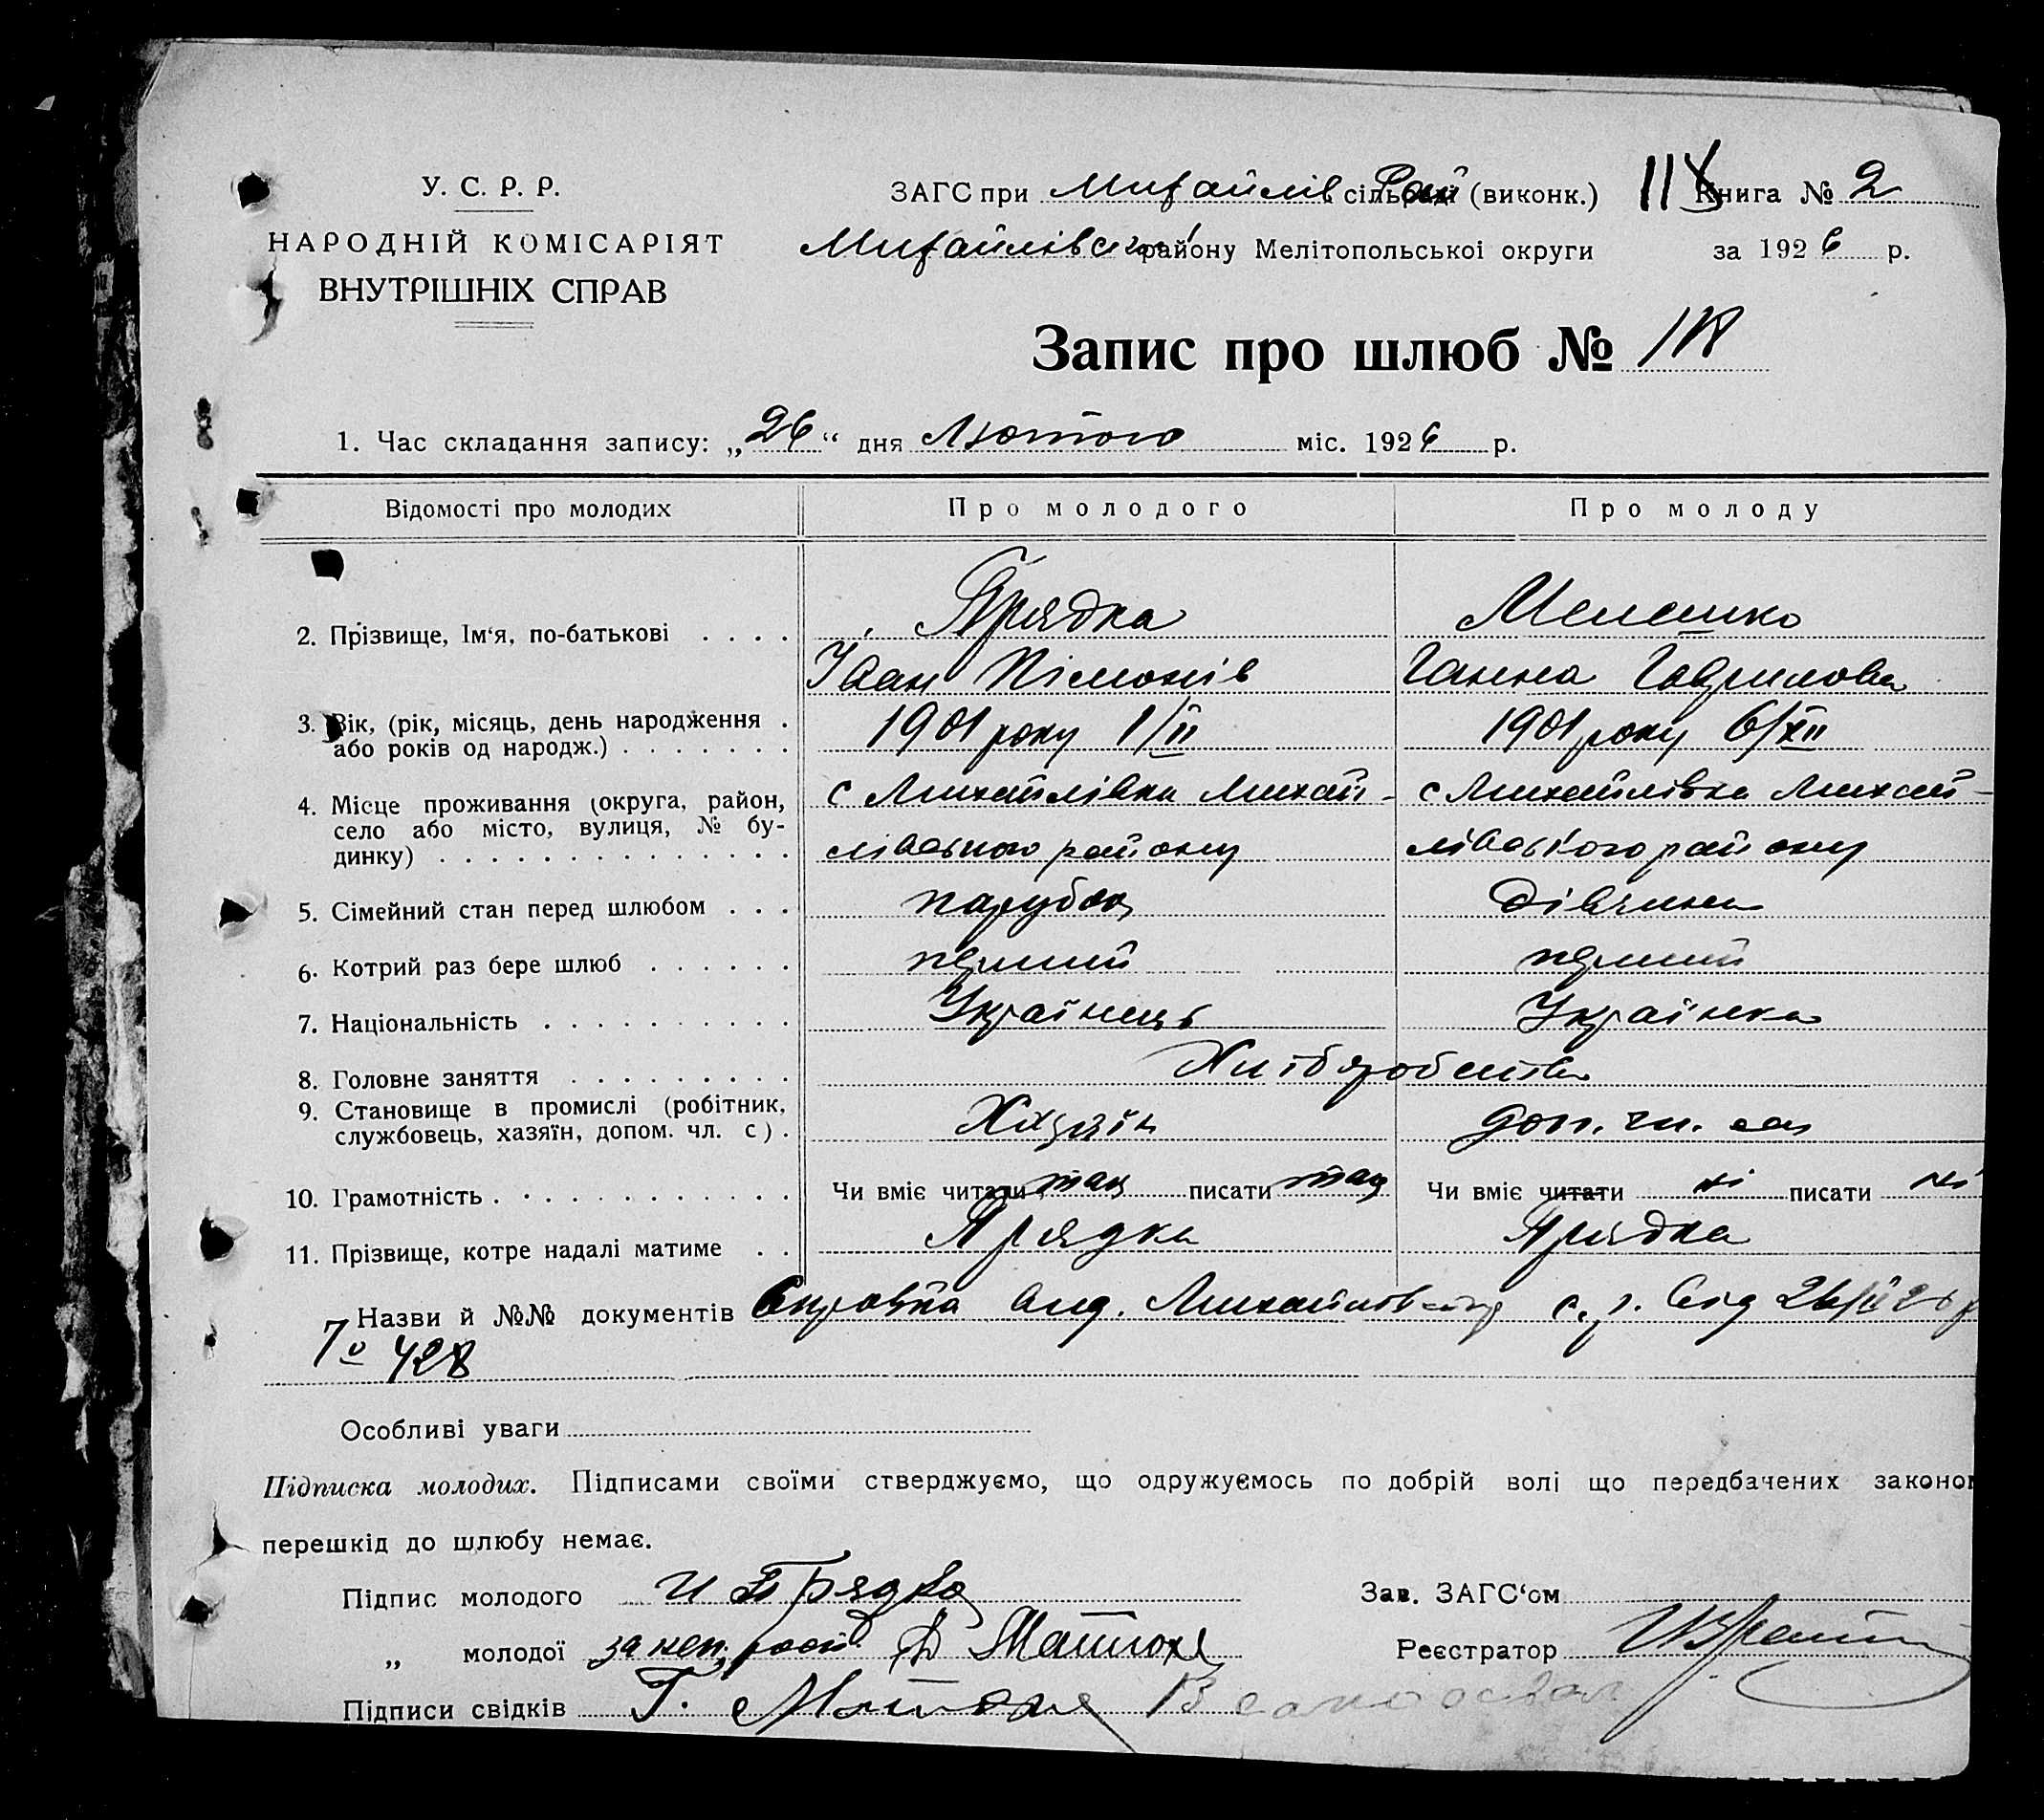 У. С. Р. Р.
НАРОДНІЙ КОМІСАРІЯТ
ВНУТРІШНІХ СПРАВ
ЗАГС при Михайлів сільраді (виконк.) Книга № 2
Михайлівськ. району Мелітопольської округи за 1926 р.
Запис про шлюб № 118
1. Час складання запису: „26“ дня Лютого міс. 1926 р.
Відомості про молодих Про молодого Про молоду
2. Прізвище, Ім‘я, по-батькові . . . . Прядка
Іван Пімонів Ганна Гаврилова
3. Вік, (рік, місяць, день народження . 1901 року 1/II 1901 року 6/XII
або років од народж.) . . . . . . .
4. Місце проживання (округа, район, с Михайлівка Михай- с Михайлівка Михай-
село або місто, вулиця, № бу- лівського району лівського району
динку) . . . . . . . . . . . . . .
5. Сімейний стан перед шлюбом . . . парубок дівчина
6. Котрий раз бере шлюб . . . . . . перший перший
7. Національність . . . . . . . . . . Українець Українка
8. Головне заняття . . . . . . . . . Хліборобство
9. Становище в промислі (робітник, Хазяїн доп. чл. сем
службовець, хазяїн, допом. чл. с) .
10. Грамотність . . . . . . . . . . . . Чи вміє читати так писати так Чи вміє читати ні писати ні
11. Прізвище, котре надалі матиме . . Прядка Прядка
Назви й №№ документів Справка вид. Михайлівською с. р. від 26/II 26 р
№ 428
Особливі уваги
Підписка молодих. Підписами своїми стверджуємо, що одружуємось по добрій волі що передбачених законом
перешкід до шлюбу немає.
Підпис молодого И Прядка Зав. ЗАГС‘ом
„ молодої за неп. Матюха Реєстратор
Підписи свідків Г.